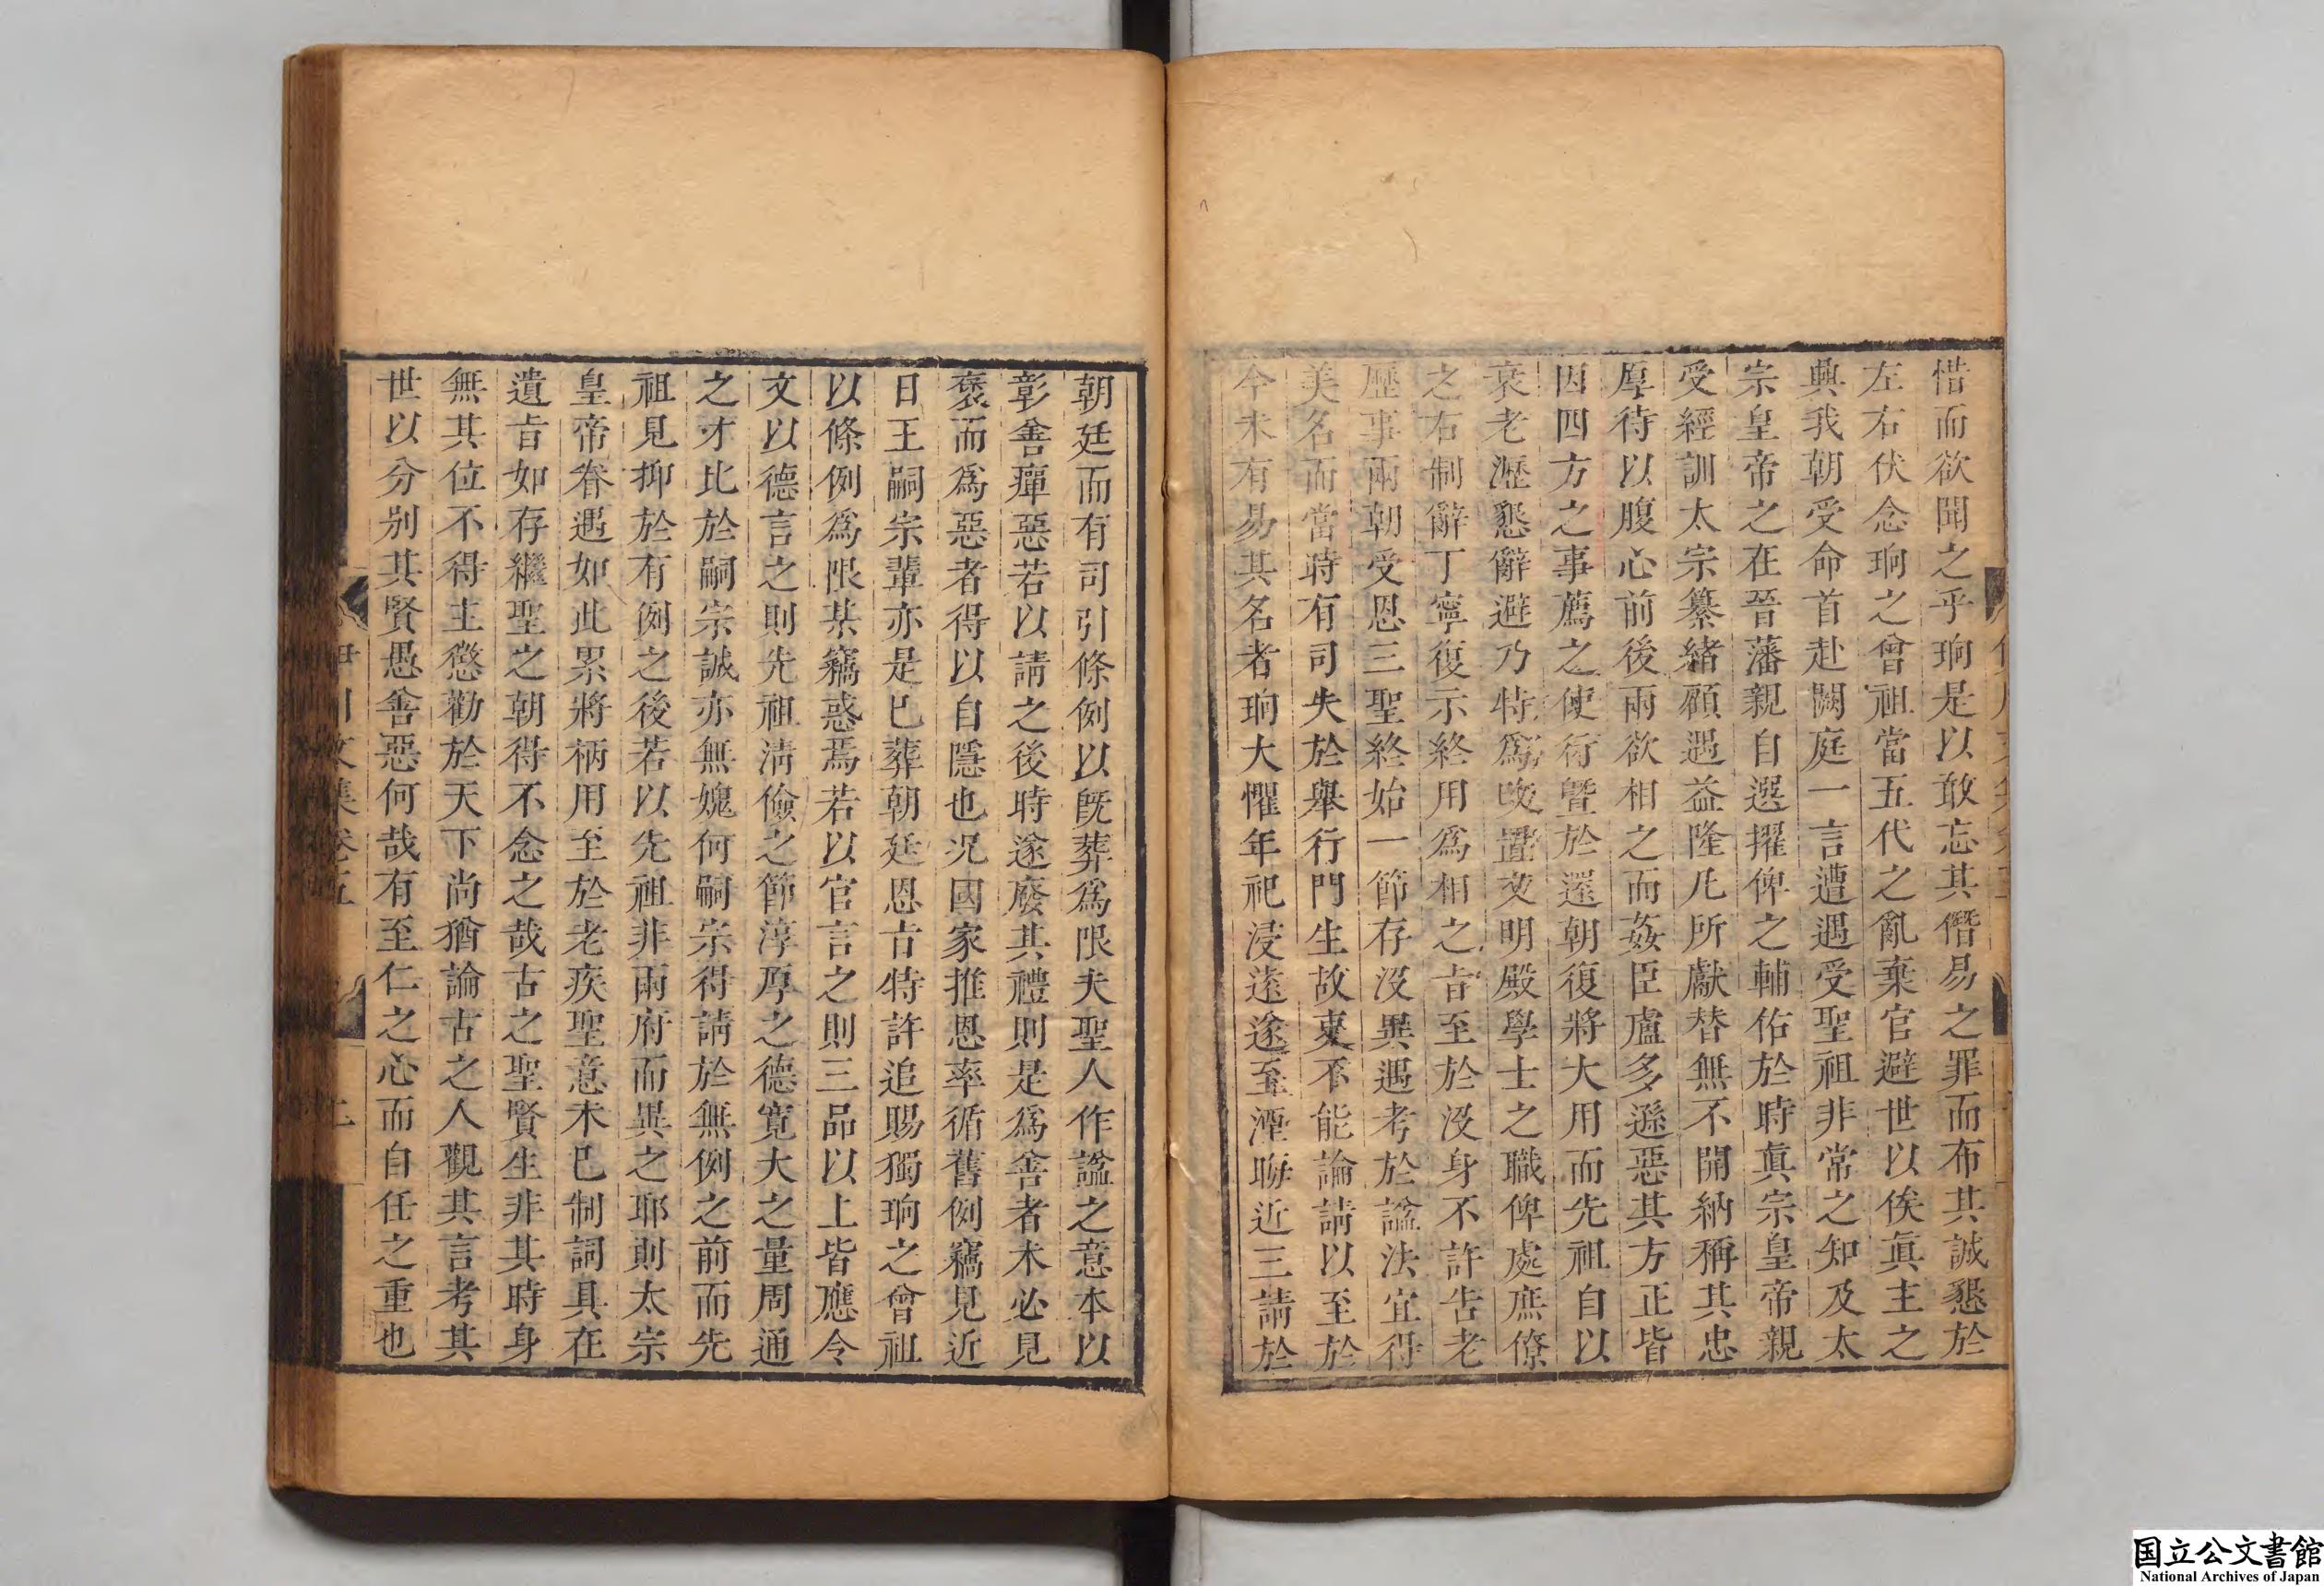 惜而欲聞之乎珦是以敢忘其僭易之罪而布其誠懇於
左右伏念珦之曾祖當五代之亂棄官避世以俟眞主之
興我朝受命首赴闕庭一言遭遇受聖祖非常之知及太
宗皇帝之在晉藩親自選擢俾之輔佑於時眞宗皇帝親
受經訓太宗纂緒顧遇益隆凡所獻替無不開納稱其忠
厚待以腹心前後兩欲相之而姦臣盧多遜惡其方正皆
因四方之事薦之使行曁於還朝復將大用而先祖自以
衰老瀝懇辭避乃特爲改置文明殿學士之職俾處庶僚
之右制辭丁寧復示終用爲相之㫖至於沒身不許告老
歷事兩朝受恩三聖終始一節存沒異遇考於諡法宜得
美名而當時有司失於舉行門生故吏不能論請以至於
今未有易其名者珦大懼年祀浸遠遂至湮晦近三請於
朝廷而有司引條例以旣葬爲限夫聖人作諡之意本以
彰善癉惡若以請之後時遂廢其禮則是爲善者未必見
褒而爲惡者得以自隱也況國家推恩率循舊例竊見近
日王嗣宗輩亦是已葬朝廷恩㫖特許追賜獨珦之曾祖
以條例爲限某竊惑焉若以官言之則三品以上皆應令
文以德言之則先祖淸儉之節淳厚之德寛大之量周通
之才比於嗣宗誠亦無媿何嗣宗得請於無例之前而先
祖見抑於有例之後若以先祖非兩府而異之耶則太宗
皇帝眷遇如此累將柄用至於老疾聖意未已制詞具在
遺㫖如存繼聖之朝得不念之哉古之聖賢生非其時身
無其位不得主懲勸於天下尚猶論古之人觀其言考其
世以分别其賢愚善惡何哉有至仁之心而自任之重也
伊川文集卷五
国立公文書館
National Archives of Japan